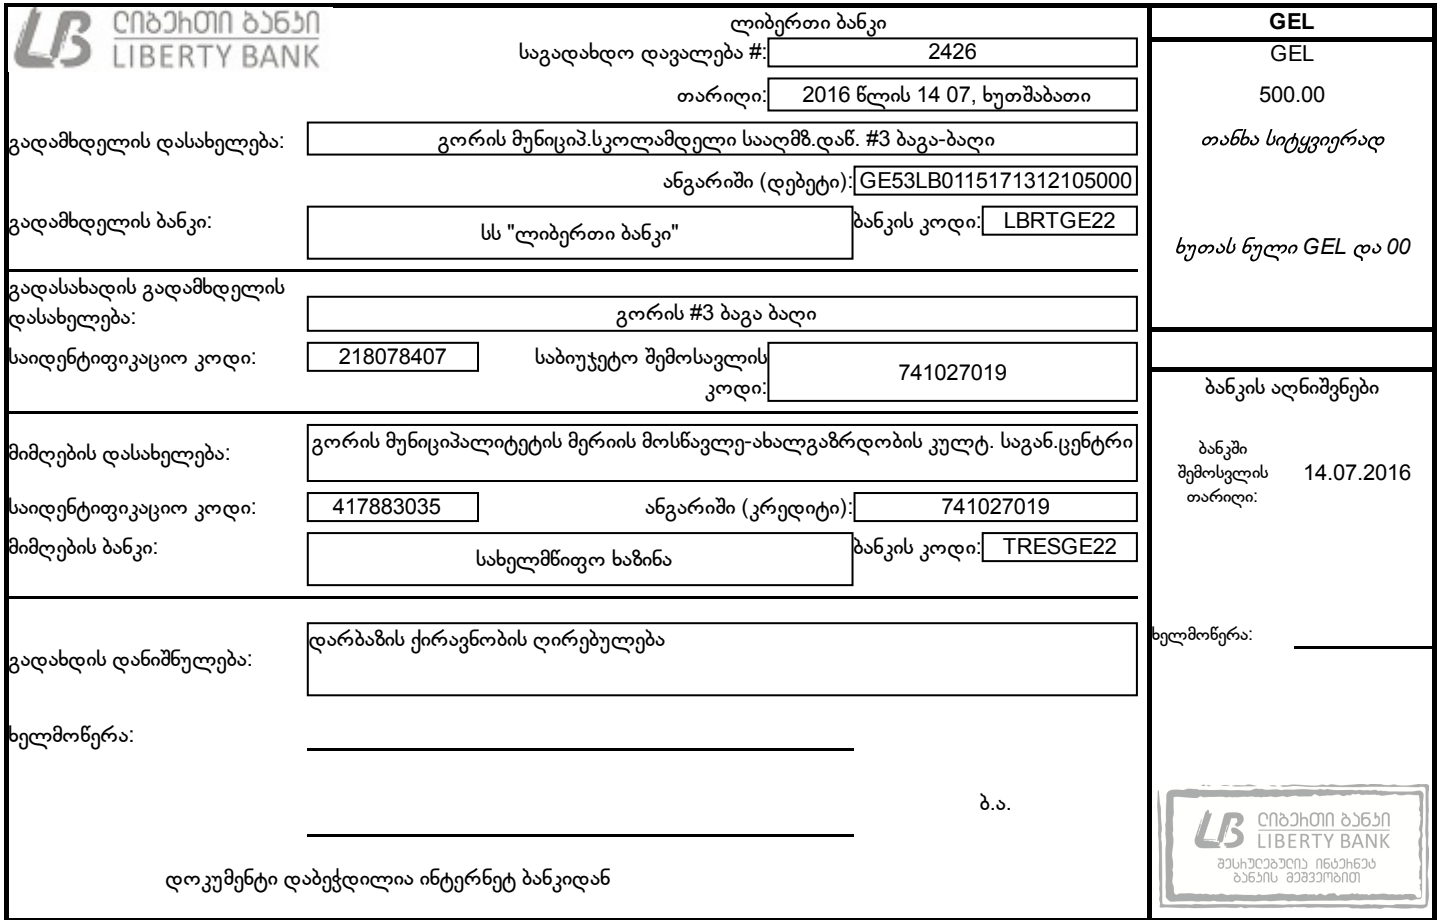 ᲚᲘᲑᲔᲠᲗᲘ ᲑᲐᲜᲙᲘ
LIBERTY BANK
ლიბერთი ბანკი
საგადახდო დავალება #: 2426
თარიღი: 2016 წლის 14 07, ხუთშაბათი
გადამხდელის დასახელება: გორის მუნიციპ.სკოლამდელი სააღმზ.დაწ. #3 ბაგა-ბაღი
ანგარიში (დებეტი): GE53LB0115171312105000
გადამხდელის ბანკი: სს "ლიბერთი ბანკი" ბანკის კოდი: LBRTGE22
გადასახადის გადამხდელის
დასახელება: გორის #3 ბაგა ბაღი
საიდენტიფიკაციო კოდი: 218078407 საბიუჯეტო შემოსავლის
კოდი: 741027019
მიმღების დასახელება: გორის მუნიციპალიტეტის მერიის მოსწავლე-ახალგაზრდობის კულტ. საგან.ცენტრი
საიდენტიფიკაციო კოდი: 417883035 ანგარიში (კრედიტი): 741027019
მიმღების ბანკი: სახელმწიფო ხაზინა ბანკის კოდი: TRESGE22
გადახდის დანიშნულება: დარბაზის ქირავნობის ღირებულება
ხელმოწერა:
ბ.ა.
დოკუმენტი დაბეჭდილია ინტერნეტ ბანკიდან
GEL
GEL
500.00
თანხა სიტყვიერად
ხუთას ნული GEL და 00
ბანკის აღნიშვნები
ბანკში
შემოსვლის
თარიღი: 14.07.2016
ხელმოწერა:
ᲚᲘᲑᲔᲠᲗᲘ ᲑᲐᲜᲙᲘ
LIBERTY BANK
ᲨᲔᲡᲠᲣᲚᲔᲑᲣᲚᲘᲐ ᲘᲜᲢᲔᲠᲜᲔᲢ
ᲑᲐᲜᲙᲘᲡ ᲛᲔᲨᲕᲔᲝᲑᲘᲗ